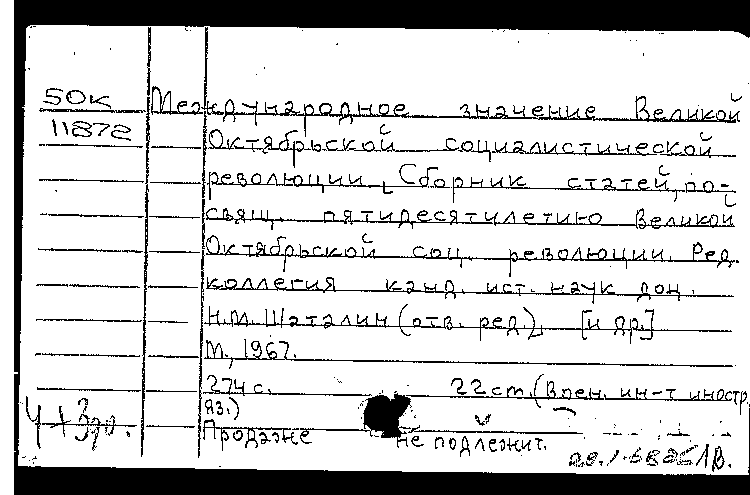 50К Международное значение Великой
11872 Октябрьской социалистической
революции. Сборник статей, по-
свящ. пятидесятилетию Великой
Октябрьской соц. революции. Ред.
коллегия канд. ист. наук доц.
Н.М. Шаталин (отв. ред.), [и др.]
М., 1967.
274 с. 22 см. (Воен. ин-т иностр.
яз.)
Продаже не подлежит.